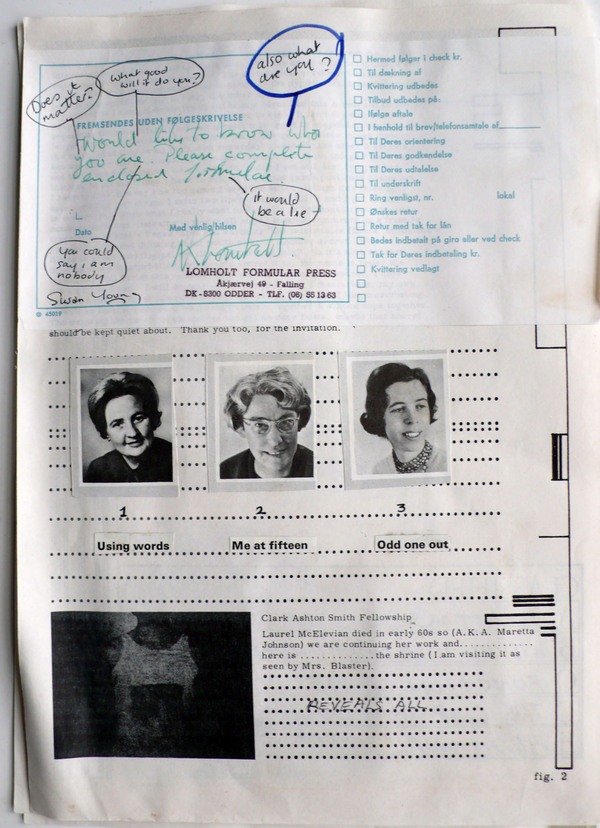 Does it
matter?
What good
will it do you?
also what
are you?
FREMSENDES UDEN FØLGESKRIVELSE
would like to know who
you are Please complete
enclosed formular.
it would
be a lie
L
Dato
Med venlig/hilsen
you could
say, i am
nobody
Swan Young
LOMHOLT FORMULAR PRESS
Åkjærvej 49 - Falling
DK-8300 ODDER - TLF. (06) 55 13 63
© 45019
Hermed følger i check kr.
Til dækning af
Kvittering udbedes
Tilbud udbedes på:
Ifølge aftale
I henhold til brev/telefonsamtale af
Til Deres orientering
Til Deres godkendelse
Til Deres udtalelse
Til underskrift
Ring venligst, nr. lokal
Ønskes retur
Retur med tak for lån
Bedes indbetalt på giro eller ved check
Tak for Deres indbetaling kr.
Kvittering vedlagt
should be kept quiet about. Thank you too, for the invitation.
1 2 3
Using words Me at fifteen Odd one out
Clark Ashton Smith Fellowship
Laurel McElevian died in early 60s so (A.K.A. Maretta
Johnson) we are continuing her work and..............
here is ..............the shrine (I am visiting it as
seen by Mrs. Blaster).
REVEALS ALL
fig. 2